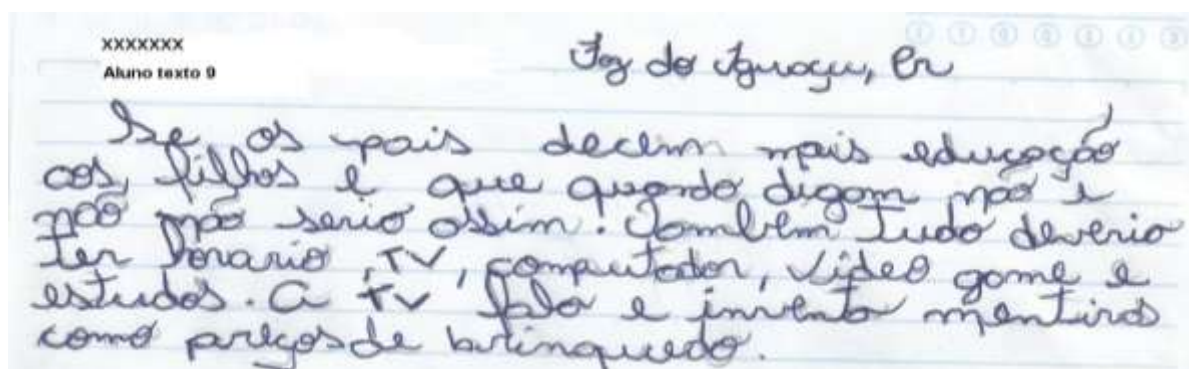 XXXXXXX
Aluno texto 9
Foz do Iguaçu, Pr
Se os pais decem mais educação
aos, filhos e que quando digam não é
não não seria assim. Também tudo deveria
ter horario, TV, computador, video game e
estudos. A TV fala e inventa mentiras
como preços de brinquedo.